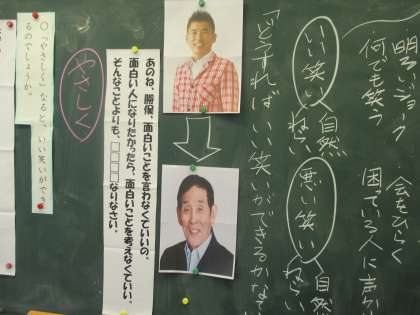 明るいジョーク
何でも笑う
会をひらく
困っている人に声か
いい笑い
自然
ねらい
悪い笑い
自然
ねらい
「どうすればいい笑いができるかな
あのね、開保、面白いことを言わなくていいの。
面白い人になりたかったら、面白いことを考えなくていい。
そんなことよりも、□□□□なりなさい。
やさしく
〇「やさしく」なると、いい笑いができ
るのでしょうか。